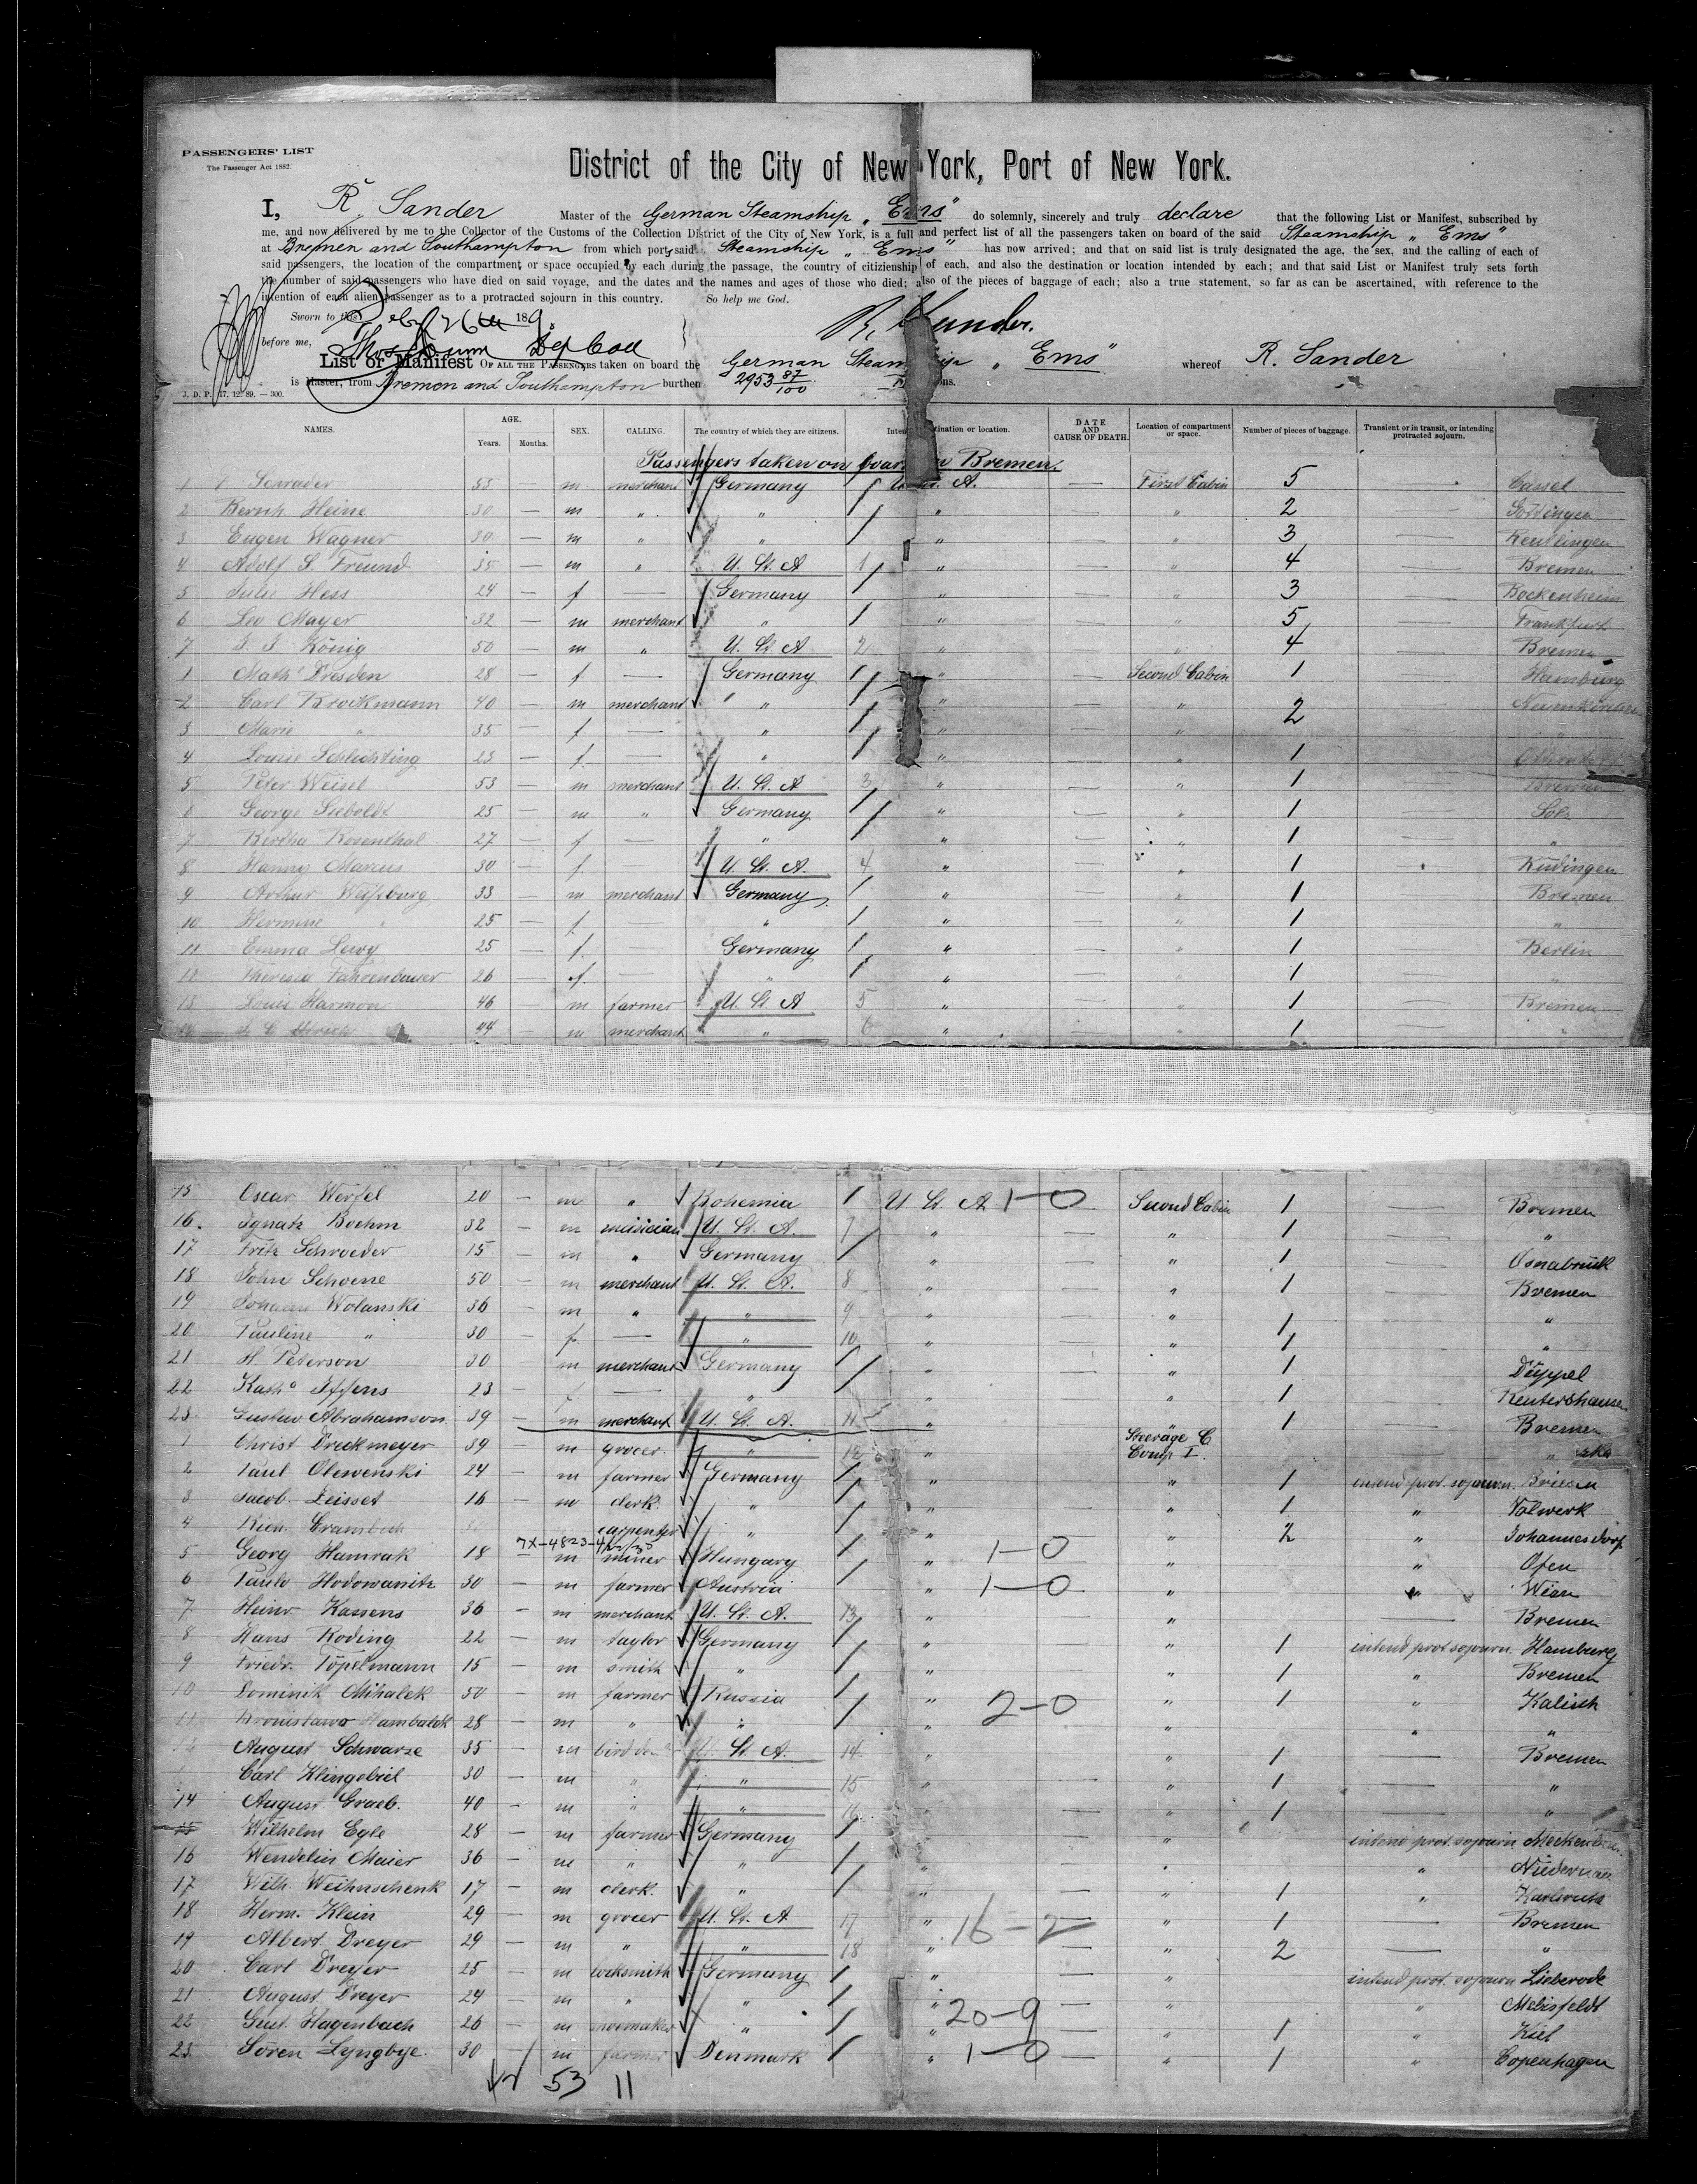 PASSENGERS' LIST
The Passenger Act 1882.
District of the City of New York, Port of New York.
I, R. Sander Master of the German Steamship „Ems" do solemnly, sincerely and truly declare that the following List or Manifest, subscribed by
me, and now delivered by me to the Collector of the Customs of the Collection District of the City of New York, is a full and perfect list of all the passengers taken on board of the said Steamship „Ems"
at Bremen and Southampton from which port, said Steamship „Ems" has now arrived; and that on said list is truly designated the age, the sex, and the calling of each of
said passengers, the location of the compartment or space occupied by each during the passage, the country of citizienship of each, and also the destination or location intended by each; and that said List or Manifest truly sets forth
the number of said passengers who have died on said voyage, and the dates and the names and ages of those who died; also of the pieces of baggage of each; also a true statement, so far as can be ascertained, with reference to the
intention of each alien passenger as to a protracted sojourn in this country. So help me God.
Sworn to this Feby 26th 189
before me, R. Sander.
List or Manifest OF ALL THE PASSENGERS taken on board the German Steamship „Ems" whereof R. Sander
is Master, from Bremen and Southampton burthen 2953 87/100 Tons.
J. D. P. 17. 12. 89. — 300.
NAMES. AGE. Years. Months. SEX. CALLING. The country of which they are citizens. Intended destination or location. DATE AND CAUSE OF DEATH. Location of compartment or space. Number of pieces of baggage. Transient or in transit, or intending protracted sojourn.
Passengers taken on board in Bremen.
1 Schrader 53 — m merchant Germany 1 U. St. A. — First Cabin 5 — Cassel
2 Bernh. Heine 30 — m „ „ 1 „ — „ 2 — Göttingen
3 Eugen Wagner 30 — m „ „ 1 „ — „ 3 — Reutlingen
4 Adolf S. Freund 35 — m „ U. St. A 1 „ — „ 4 — Bremen
5 Julie Hess 24 — f — Germany 1 „ — „ 3 — Bockenheim
6 Leo Mayer 32 — m merchant „ 1 „ — „ 5 — Frankfurt
7 J. J. König 50 — m „ U. St. A 2 „ — „ 4 — Bremen
1 Math. Dresden 28 — f — Germany 1 „ — Second Cabin 1 — Hamburg
2 Carl Brockmann 40 — m merchant „ 1 „ — „ 2 — Neuenkirchen
3 Marie „ 35 — f — „ 1 „ — „ —
4 Louise Schlichting 23 — f — „ 1 „ — „ 1 —
5 Peter Weisel 53 — m merchant U. St. A 3 „ — „ 1 — Bremen
6 George Sieboldt 25 — m „ Germany 1 „ — „ 1 —
7 Bertha Rosenthal 27 — f — „ 1 „ — „ 1 — „
8 Hanny Marcus 30 — f U. St. A. 4 „ — „ 1 — Büdingen
9 Arthur Weissburg 33 — m merchant Germany 1 „ — „ 1 — Bremen
10 Hermine „ 25 — f „ 1 „ — „ 1 — „
11 Emma Lewy 25 — f — Germany 1 „ — „ 1 — Berlin
12 Theresia Fahrenbauer 26 — f — „ 1 „ — „ 1 — „
13 Louis Harmon 46 — m farmer U. St. A 5 „ — „ 1 — Bremen
14 44 — m merchant „ 6 „ — „ 1 —
15 Oscar Werfel 20 — m „ Bohemia 1 U. St. A 1-0 Second Cabin 1 — Bremen
16. Ignatz Boehm 32 — m musician U. St. A. 7 „ — „ 1 — „
17 Fritz Schroeder 15 — m „ Germany 1 „ — „ 1 — Osnabrück
18 John Schoene 50 — m merchant U. St. A. 8 „ — „ 1 — Bremen
19 Johann Wolanski 36 — m „ „ 9 „ — „ — „
20 Pauline „ 30 — f — „ 10 „ — „ 1 — „
21 H. Peterson 30 — m merchant Germany 1 „ — „ 1 — Düppel
22 Katha Iffens 23 — f — „ 1 „ — „ 1 — Reutershausen
23. Gustav Abrahamson. 39 — m merchant U. St. A. 11 „ — „ 1 — Bremen
1 Christ Dreckmeyer 39 — m grocer. „ 12 „ — Steerage C Comp I. — „
2 Paul Olewenski 24 — m farmer Germany 1 „ — „ 1 intend prot. sojourn. Briesen
3 Jacob. Leisset 16 — m clerk. „ 1 „ — „ 1 „ Volwerk
4 Rich. carpenter „ 1 „ — „ 2 „ Johannesdorf
7X-4823-
5 Georg Hamrak 18 — m miner Hungary 1 „ 1-0 „ „ Ofen
6 Paulo Hodowanitz 30 — m farmer Austria 1 „ 1-0 „ „ Wien
7 Heinr. Kassens 36 — m merchant U. St. A. 13 „ — „ — Bremen
8 Hans Roding 22 — m taylor Germany 1 „ — „ 1 intend prot sojourn. Hamburg
9 Friedr. Töpelmann 15 — m smith „ 1 „ — „ 1 „ Bremen
10 Dominik Mihalek 50 — m farmer Russia 1 „ 2-0 „ 1 „ Kalisch
11 Bronislawo Hambalek 28 — m „ „ 1 „ „ „ „
12 August Schwarze 35 — m U. St. A. 14 „ — „ 1 — Bremen
Carl Klingebiel 30 — m „ „ 15 „ — „ 1 — „
14 August Graeb. 40 — m „ „ 16 „ — „ 1 — „
15 Wilhelm Egle 28 — m farmer Germany 1 „ — „ intend prot. sojourn
16 Wendelin Maier 36 — m „ „ 1 „ — „ „ Niedernau
17 Wilh. Weihnschenk 17 — m clerk. „ 1 „ — „ 1 „ Karlsruhe
18 Herm. Klein 29 — m grocer U. St. A 17 „ 16-2 „ 1 — Bremen
19 Albert Dreyer 29 — m „ „ 18 „ — „ 2 — „
20 Carl Dreyer 25 — m locksmith Germany 1 „ — „ intend prot. sojourn Lieberode
21 August Dreyer 24 — m „ „ 1 „ — „ „ Melisfeldt
22 Gust. Hagenbach 26 — m shoemaker „ 1 „ 20-9 — „ 1 „ Kiel
23. Sören Lyngbye. 30 m farmer Denmark 1 „ 1-0 — „ 1 „ Copenhagen
53 11